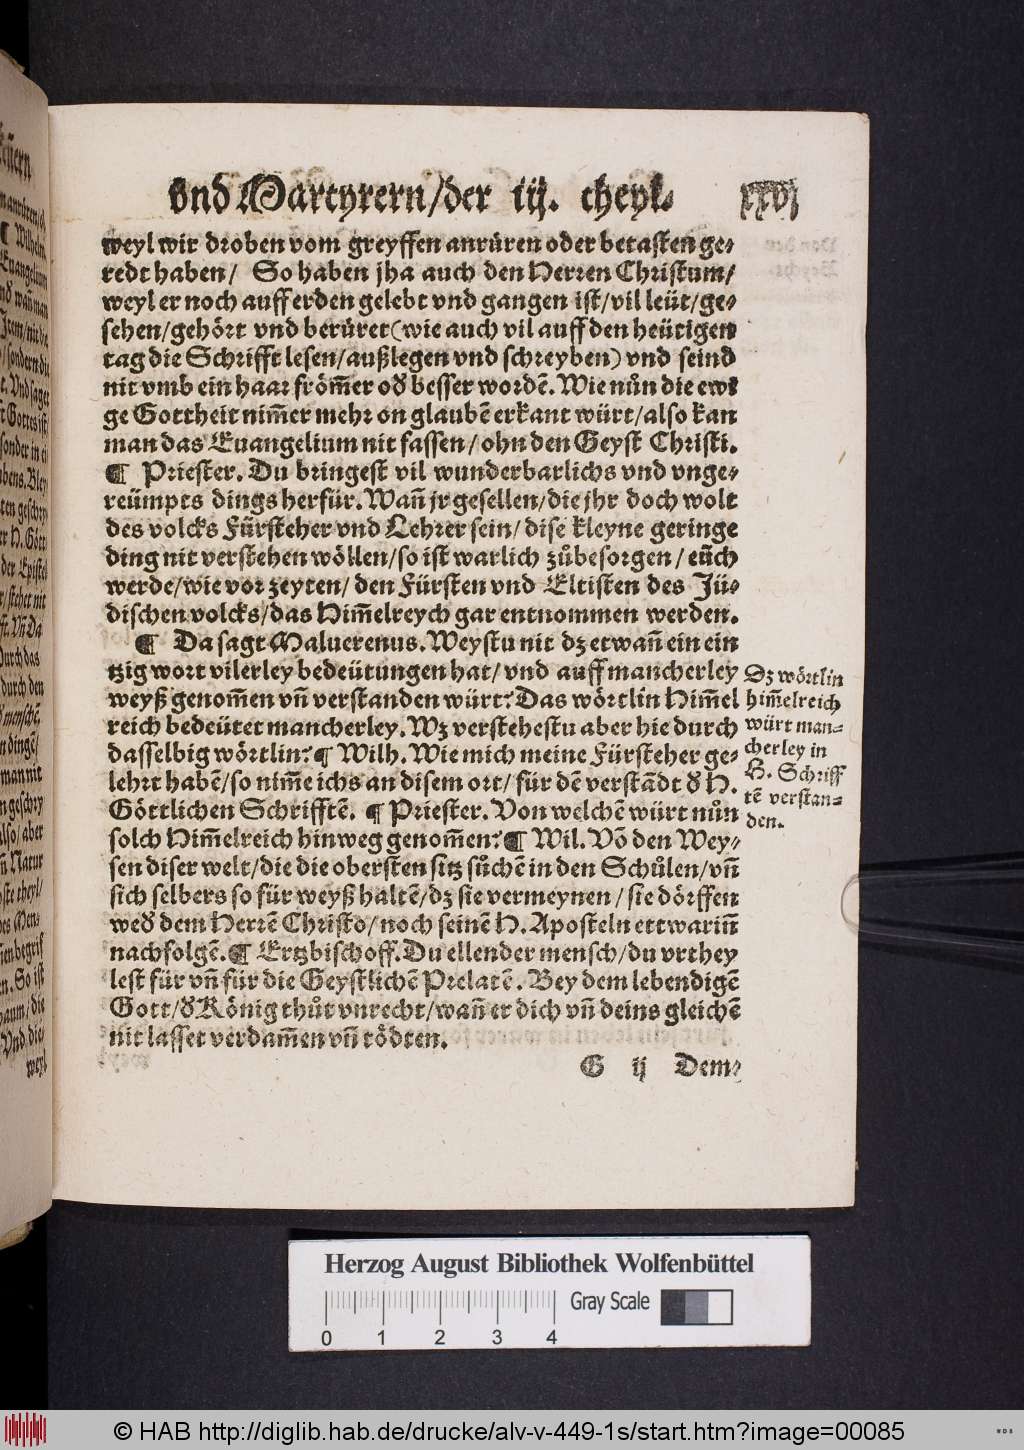 vnd Martyrern/der iij. theyl. xxvj
weyl wir droben vom greyffen anrüren oder betasten ge⸗
redt haben/ So haben jha auch den Herren Christum/
weyl er noch auff erden gelebt vnd gangen ist/vil leüt/ge⸗
sehen/gehört vnd berüret(wie auch vil auff den heütigen
tag die Schrifft lesen/außlegen vnd schreyben) vnd seind
nit vmb ein haar frōmer od̄ besser wordē. Wie nůn die ewi
ge Gottheit nim̄er mehr on glaubē erkant würt/also kan
man das Euangelium nit fassen/ohn den Geyst Christi.
¶ Priester. Du bringest vil wunderbarlichs vnd vnge⸗
reümpts dings herfür. Wañ jr gesellen/die jhr doch wolt
des volcks Fürsteher vnd Lehrer sein/dise kleyne geringe
ding nit verstehen wöllen/so ist warlich zůbesorgen/eüch
werde/wie vor zeyten/den Fürsten vnd Eltisten des Jü⸗
dischen volcks/das Him̄elreych gar entnommen werden.
¶ Da sagt Maluerenus. Weystu nit dz etwañ ein ein
tzig wort vilerley bedeütungen hat/vnd auff mancherley
weyß genom̄en vñ verstanden würt? Das wörtlin Him̄el
reich bedeütet mancherley. Wz verstehestu aber hie durch
dasselbig wörtlin? ¶ Wilh. Wie mich meine Fürsteher ge⸗
lehrt habē/so nim̄e ichs an disem ort/für dē verstādt d̄ H.
Göttlichen Schrifftē. ¶ Priester. Von welchē würt nůn
solch Him̄elreich hinweg genom̄en? ¶ Wil. Vō den Wey⸗
sen diser welt/die die obersten sitz sůchē in den Schůlen/vñ
sich selbers so für weyß haltē/dz sie vermeynen/sie dörffen
wed̄ dem Herrē Christo/noch seinē H. Aposteln ettwariñ
nachfolgē. ¶ Ertzbischoff. Du ellender mensch/du vrthey
lest für vñ für die Geystlichē Prelatē. Bey dem lebendigē
Gott/d̄ König thůt vnrecht/wañ er dich vñ deins gleichē
nit lasset verdam̄en vñ tödten.
G ij Dem⸗
Dz wörtlin
him̄elreich
würt man⸗
cherley in
H. Schriff
tē verstan⸗
den.
Herzog August Bibliothek Wolfenbüttel
Gray Scale
0 1 2 3 4
© HAB http://diglib.hab.de/drucke/alv-v-449-1s/start.htm?image=00085